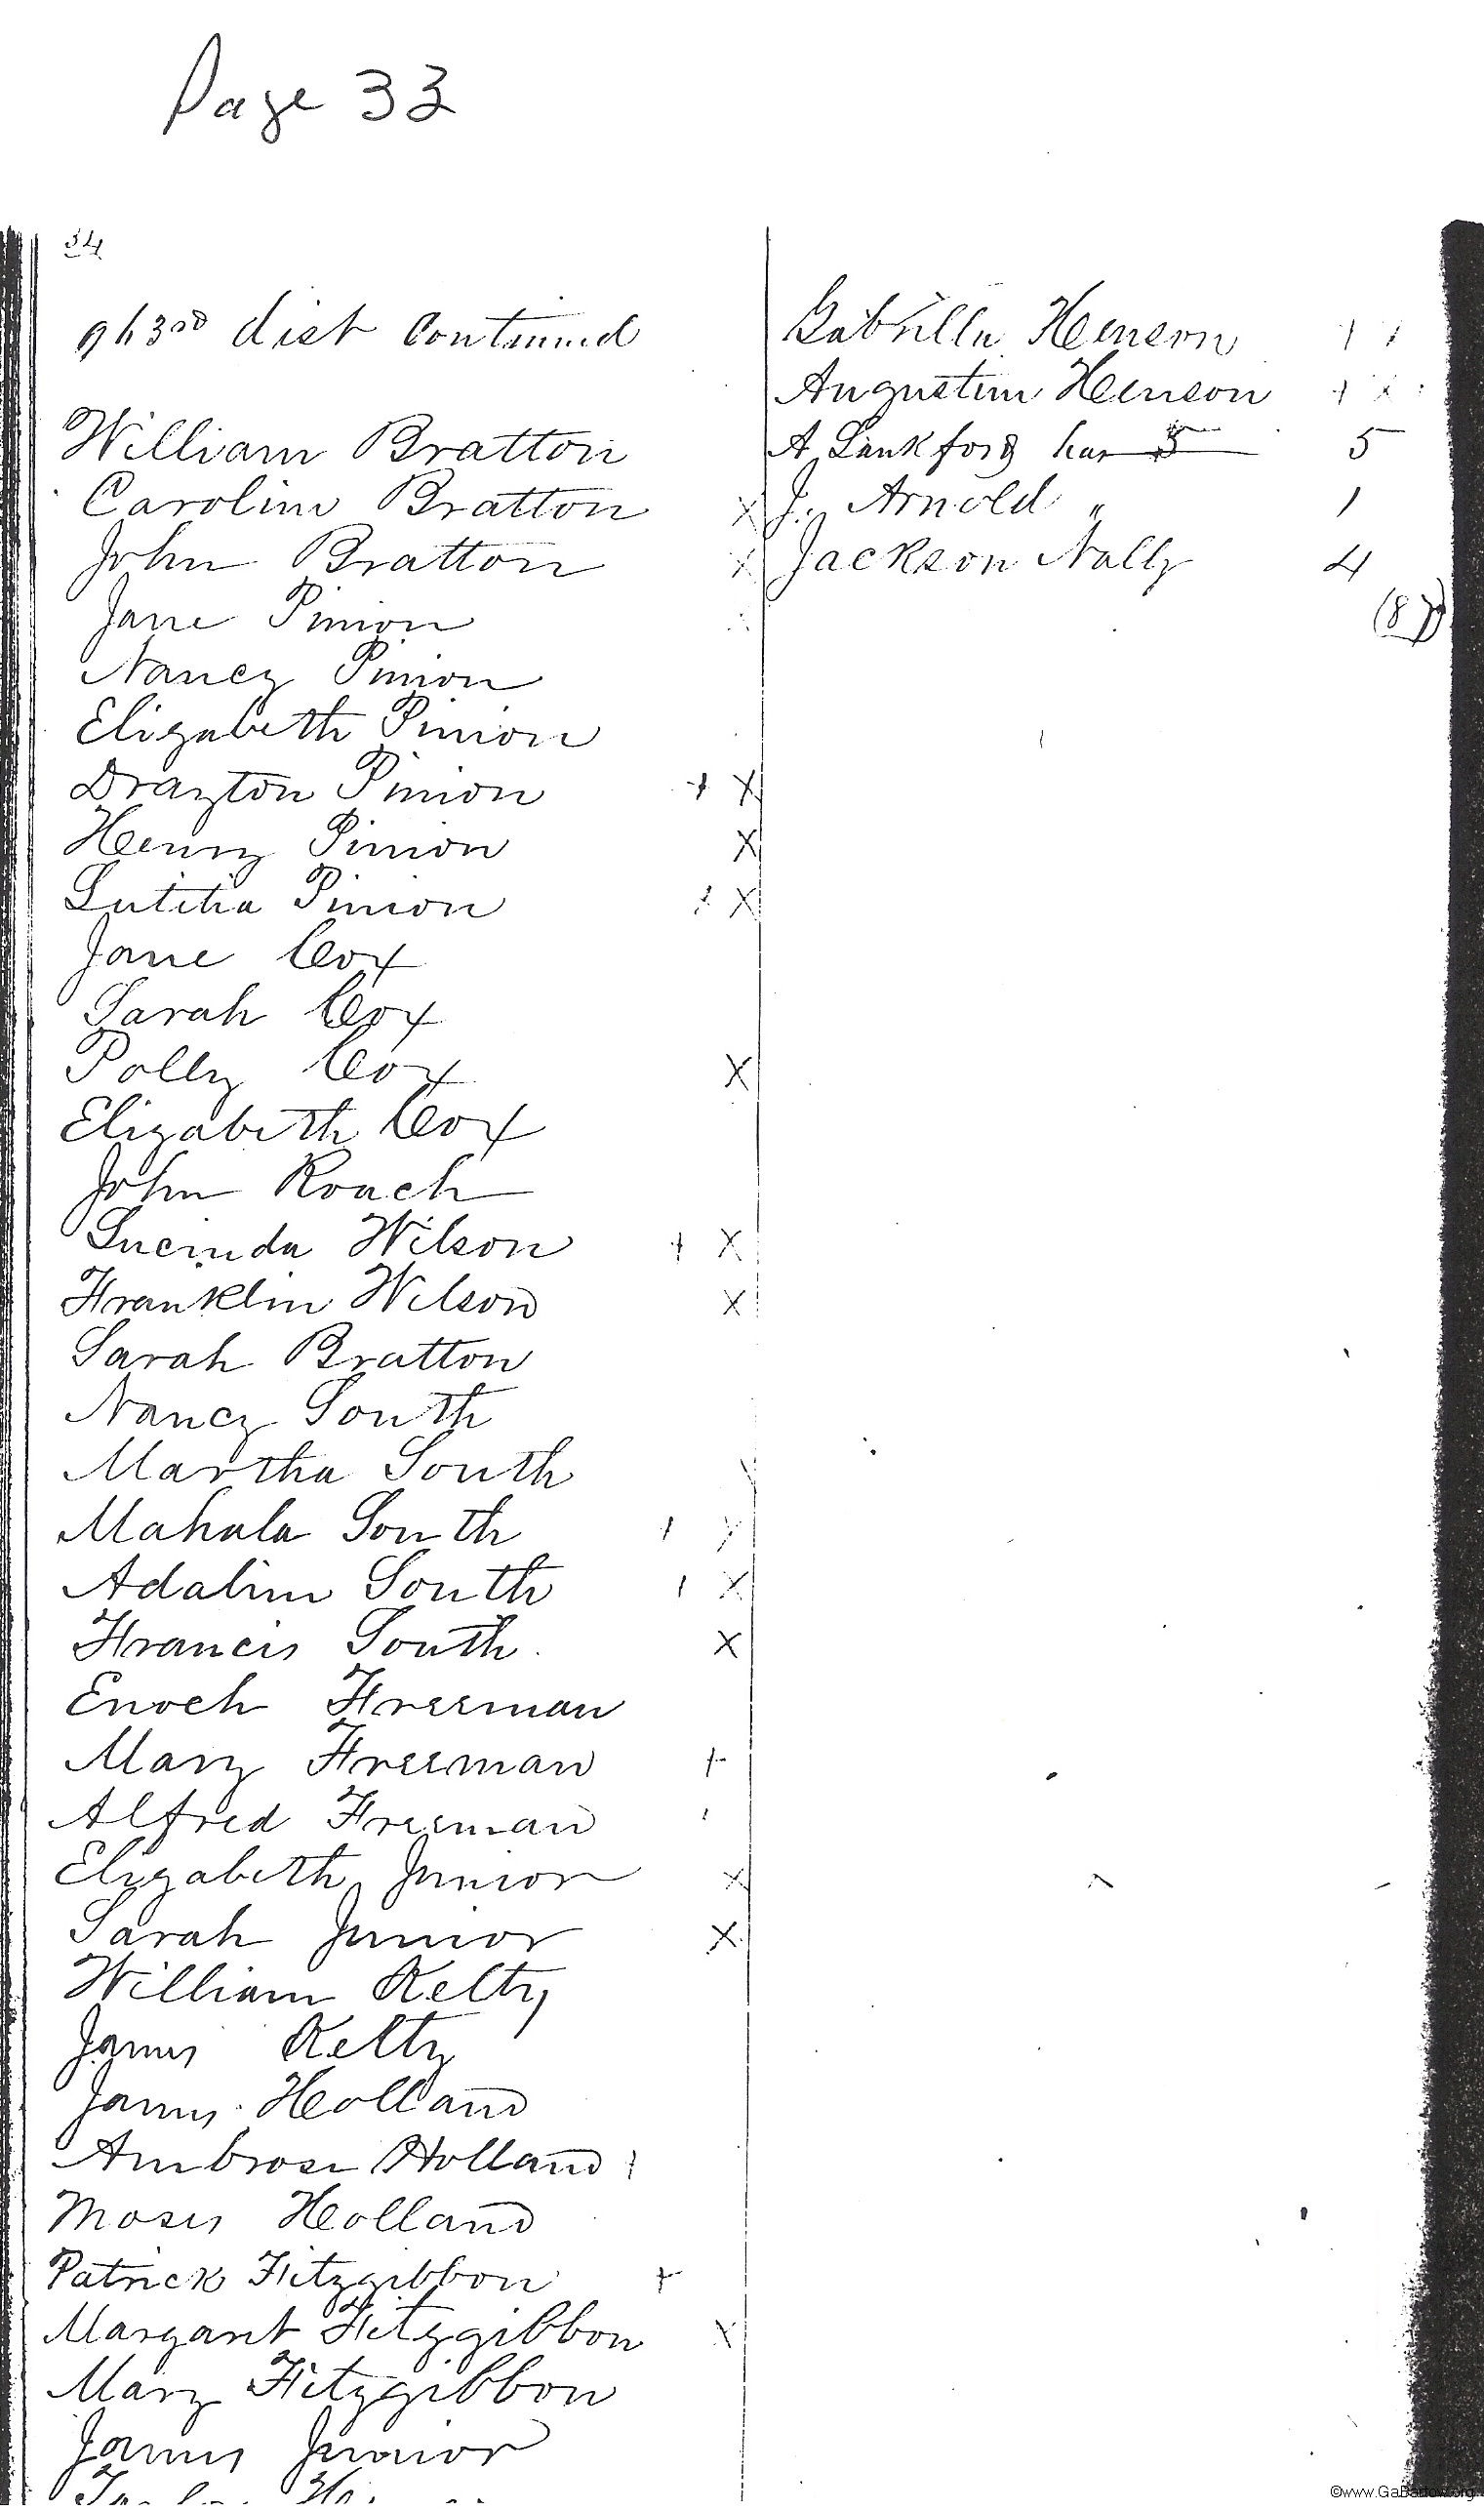 Page 33
34
963rd dist Continued
William Bratton
Caroline Bratton X
John Bratton X
Jane Pinion
Nancy Pinion
Elizabeth Pinion
Drayton Pinion + X
Henry Pinion X
Lutitia Pinion X
Jane Cox
Sarah Cox
Polly Cox X
Elizabeth Cox
John Roach
Lucinda Wilson + X
Franklin Wilson X
Sarah Bratton
Nancy South
Martha South
Mahala South
Adaline South X
Francis South X
Enoch Freeman
Mary Freeman +
Alfred Freeman
Elizabeth Junior X
Sarah Junior X
William Kelty
James Kelty
James Holland
Ambrose Holland
Moses Holland
Patrick Fitzgibbon +
Margaret Fitzgibbon X
Mary Fitzgibbon
James Junior
Gabrilla Henson
Augustine Henson + X
A Lankford has 5 5
J. Arnold " 1
Jackson Nally 4
(87)
©www.GaBartow.org